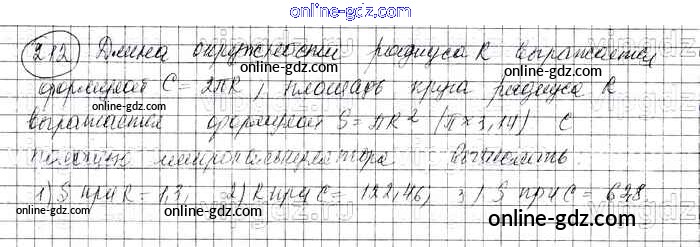 online-gdz.com
212 Длина окружности радиуса R выражается
формулой C = 2πR, площадь круга радиуса R
выражается формулой S = πR² (π≈3,14) С
помощью микрокалькулятора вычислить.
1) S при R = 1,3, 2) R при C = 122,46, 3) S при C =
online-gdz.com
online-gdz.com
online-gdz.com
online-gdz.com
online-gdz.com
online-gdz.com
online-gdz.com